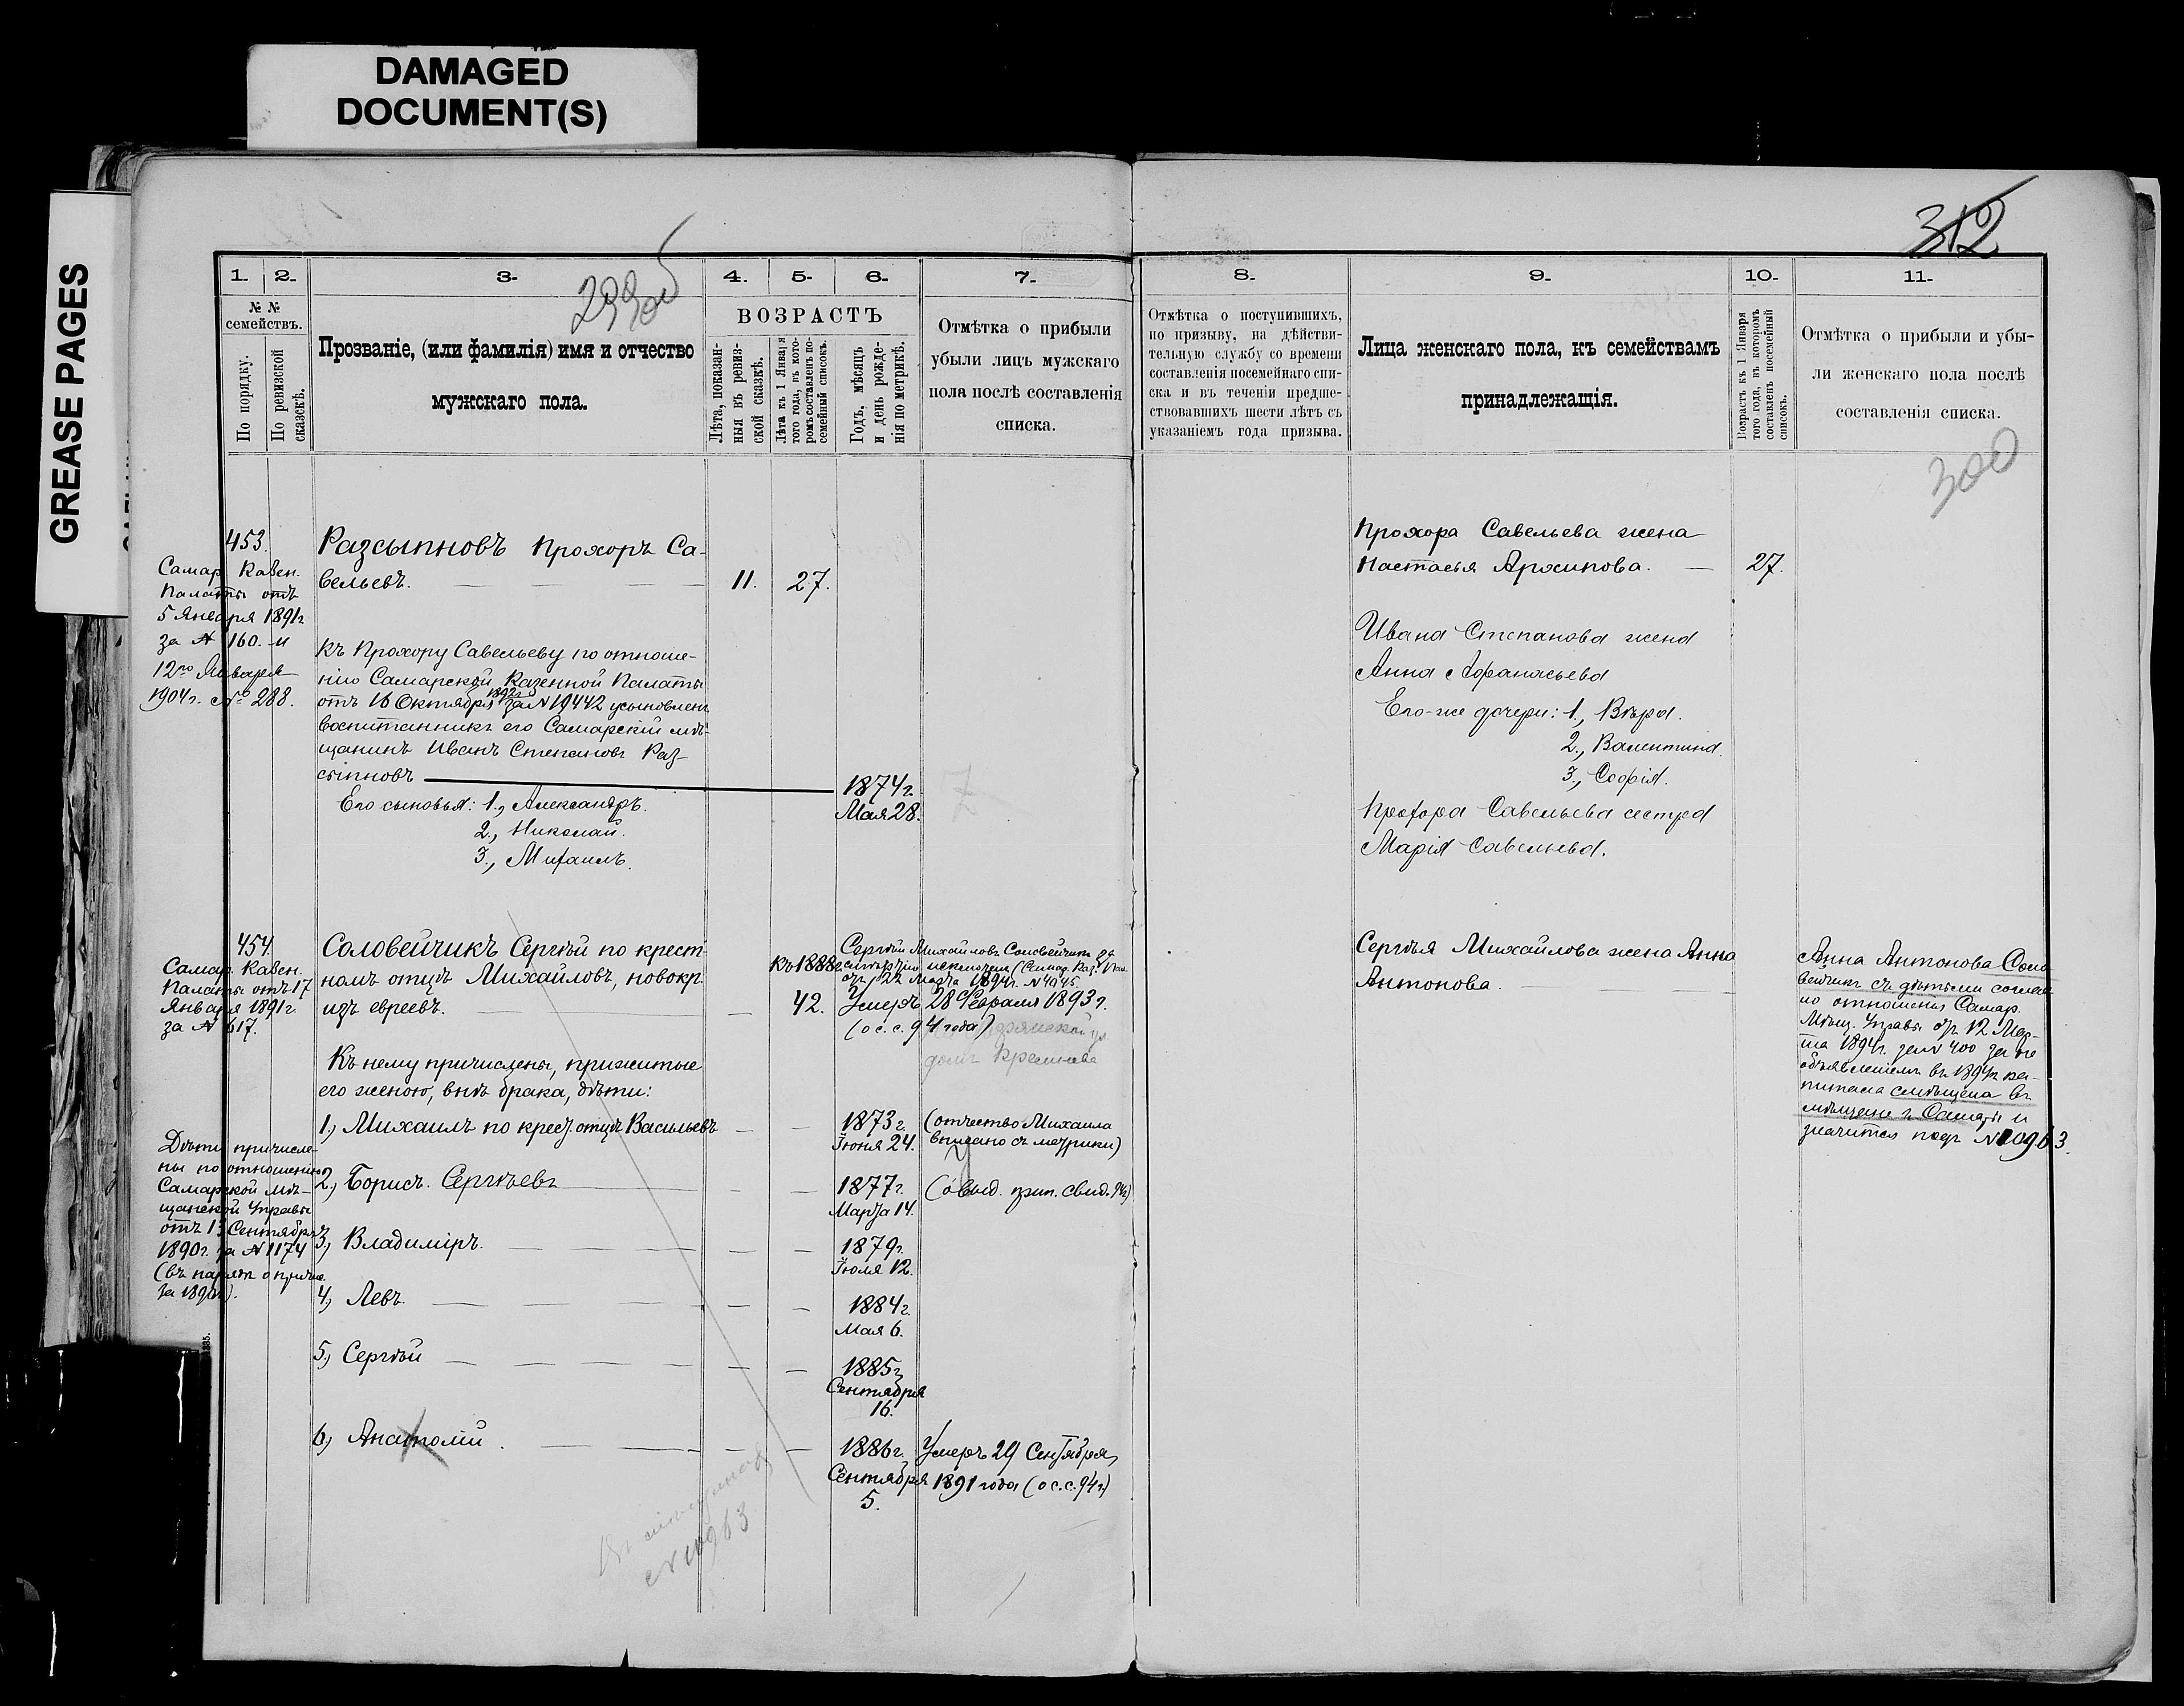 DAMAGED
DOCUMENT(S)
GREASE PAGES
312
299об
300
1. 2. 3. 4. 5. 6. 7. 8. 9. 10. 11.
№ №
семействъ.
По порядку.
По ревизской
сказкѣ.
Прозваніе, (или фамилія) имя и отчество
мужскаго пола.
ВОЗРАСТЪ
Лѣта, показан-
ныя въ ревиз-
ской сказкѣ.
Лѣта къ 1 Января
того года, въ кото-
ромъ составленъ по-
семейный списокъ.
Годъ, мѣсяцъ
и день рожде-
нія по метрикѣ.
Отмѣтка о прибыли
убыли лицъ мужскаго
пола послѣ составленія
списка.
Отмѣтка о поступившихъ,
по призыву, на дѣйстви-
тельную службу со времени
составленія посемейнаго спи-
ска и въ теченіи предше-
ствовавшихъ шести лѣтъ съ
указаніемъ года призыва.
Лица женскаго пола, къ семействамъ
принадлежащія.
Возрастъ къ 1 Января
того года, въ которомъ
составленъ посемейный
списокъ.
Отмѣтка о прибыли и убы-
ли женскаго пола послѣ
составленія списка.
453.
Самар. Казен.
Палаты отъ
5 Января 1891г
за № 160. и
12го Января
1904г. № 288.
Разсыпновъ Прохоръ Са-
вельевъ. 11. 27.
Къ Прохору Савельеву по отноше-
нію Самарской Казенной Палаты
отъ 16 Октября 1892г. за № 19442 усыновленъ
воспитанникъ его Самарскій мѣ-
щанинъ Иванъ Степановъ Раз-
сыпновъ 1874г.
Мая 28.
Его сыновья: 1., Александръ.
2., Николай.
3., Михаилъ.
Прохора Савельева жена
Настасья Архипова. 27.
Ивана Степанова жена
Анна Афанасьева
Его-же дочери: 1., Вѣра.
2., Валентина.
3., Софія.
Прохора Савельева сестра
Марія Савельева.
454.
Самар. Казен.
Палаты отъ 17
Января 1891г.
за № 617.
Соловейчикъ Сергѣй по крест-
номъ отцѣ Михайловъ, новокр.
изъ евреевъ. 42.
Къ 1888г.
Сергѣй Михайловъ Соловейчикъ за
смертію исключенъ (Самар. Каз. Пал.
отъ 22 Марта 1894г. № 4045.
Умеръ 28 Февраля 1893г.
(о с. с. 94 года)
домъ
Къ нему причислены, прижитые
его женою, внѣ брака, дѣти:
1., Михаилъ по крест. отцѣ Васильевъ 1873г.
Іюня 24.
(отчество Михаила
вписано съ метрики)
2., Борисъ Сергѣевъ 1877г.
Марта 14.
3., Владиміръ. 1879г.
Іюля 12.
4., Левъ. 1884г.
Мая 6.
5., Сергѣй 1885г.
Сентября
16.
6., Анатолій. 1886г.
Сентября
5.
Умеръ 29 Сентября
1891 года (о с. с. 94г)
Дѣти причисле-
ны по отношенію
Самарской мѣ-
щанской Управы
отъ 13 Сентября
1890г. за № 1174
за 1890г).
№ 10963
Сергѣя Михайлова жена Анна
Антонова.
Анна Антонова Соло-
вейчикъ съ дѣтьми соглас-
но отношенія Самар.
Мѣщ. Управы отъ 12 Мар-
та 1894г. за № 400 за не
объявленіемъ въ 1894г ка-
питала смѣщена въ
мѣщане г. Самары и
значится подъ № 10963.